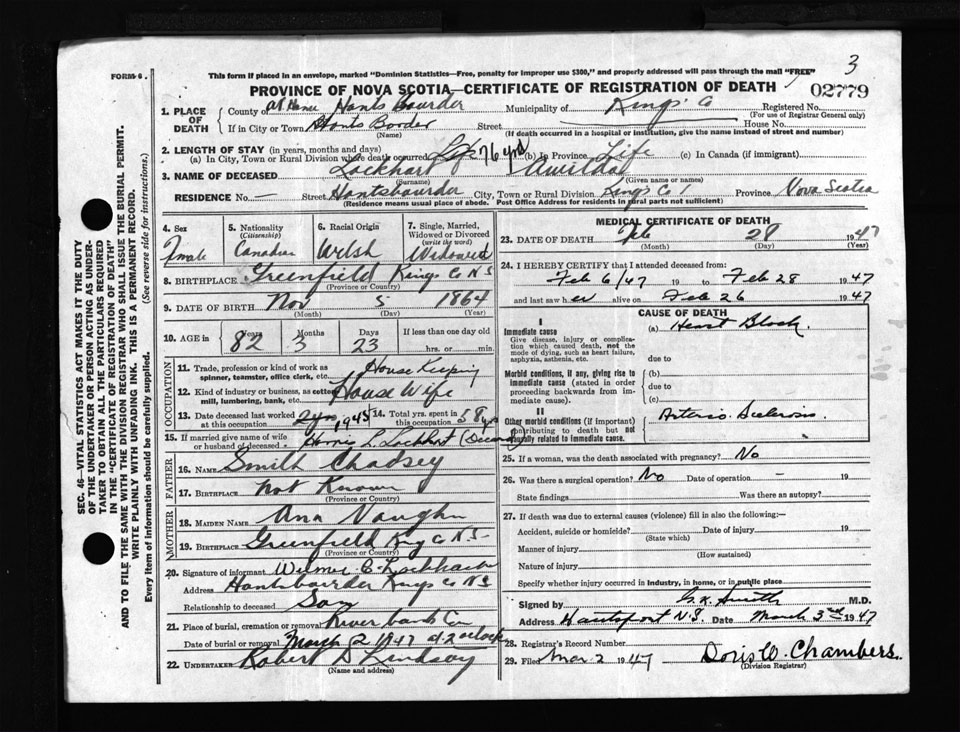 3
FORM 6.
This form if placed in an envelope, marked "Dominion Statistics—Free, penalty for improper use $300," and properly addressed will pass through the mail "FREE"
PROVINCE OF NOVA SCOTIA—CERTIFICATE OF REGISTRATION OF DEATH
02779
SEC. 46—VITAL STATISTICS ACT MAKES IT THE DUTY
OF THE UNDERTAKER OR PERSON ACTING AS UNDER-
TAKER TO OBTAIN ALL THE PARTICULARS REQUIRED
IN THE "CERTIFICATE OF REGISTRATION OF DEATH"
AND TO FILE THE SAME WITH THE DIVISION REGISTRAR WHO SHALL ISSUE THE BURIAL PERMIT.
WRITE PLAINLY WITH UNFADING INK. THIS IS A PERMANENT RECORD.
Every item of information should be carefully supplied. (See reverse side for instructions.)
1. PLACE OF DEATH County of At Home Hants Boarder Municipality of Kings Co Registered No.
(For use of Registrar General only)
If in City or Town Hants Border Street House No.
(Name) (If death occurred in a hospital or institution, give the name instead of street and number)
2. LENGTH OF STAY (in years, months and days)
(a) In City, Town or Rural Division where death occurred Life 76 yrs (b) In Province Life (c) In Canada (if immigrant)
3. NAME OF DECEASED Lockhart Awilda
(Surname) (Given name or names)
RESIDENCE No. — Street Hantsboarder City, Town or Rural Division Kings Co Province Nova Scotia
(Residence means usual place of abode. Post Office Address for residents in rural parts not sufficient)
4. Sex 5. Nationality (Citizenship) 6. Racial Origin 7. Single, Married, Widowed or Divorced (write the word)
Female Canadian Welsh Widowed
8. BIRTHPLACE Greenfield Kings Co N.S
(Province or Country)
9. DATE OF BIRTH Nov 5 1864
(Month) (Day) (Year)
10. AGE in Years Months Days If less than one day old
82 3 23 hrs. or min.
OCCUPATION
11. Trade, profession or kind of work as spinner, teamster, office clerk, etc. House Keeping
12. Kind of industry or business, as cotton mill, lumbering, bank, etc. House Wife
13. Date deceased last worked at this occupation 2 yrs 1945 14. Total yrs. spent in this occupation 58 yrs
15. If married give name of wife or husband of deceased Harris L. Lockhart (Deceased)
FATHER
16. NAME Smith Chadsey
17. BIRTHPLACE Not Known
(Province or Country)
MOTHER
18. MAIDEN NAME Ana Vaughn
19. BIRTHPLACE Greenfield Kings Co N.S
(Province or Country)
20. Signature of informant E. Lockhart
Address Hantsboarder Kings Co N.S
Relationship to deceased Son
21. Place of burial, cremation or removal River bank Cem
Date of burial or removal March 2 1947 at 2 oclock
22. UNDERTAKER Robert S Lindsay
MEDICAL CERTIFICATE OF DEATH
23. DATE OF DEATH Feb 28 1947
(Month) (Day) (Year)
24. I HEREBY CERTIFY that I attended deceased from:
Feb 6/47 19 to Feb 28 1947
and last saw her alive on Feb 26 1947
CAUSE OF DEATH
I
Immediate cause
Give disease, injury or complication which caused death, not the mode of dying, such as heart failure, asphyxia, asthenia, etc.
(a) Heart Block
due to
Morbid conditions, if any, giving rise to immediate cause (stated in order proceeding backwards from immediate cause).
(b)
due to
(c)
II
Other morbid conditions (if important) contributing to death but not causally related to immediate cause.
Arterio Sclerosis
25. If a woman, was the death associated with pregnancy? No
26. Was there a surgical operation? No Date of operation — 19
State findings Was there an autopsy?
27. If death was due to external causes (violence) fill in also the following:—
Accident, suicide or homicide? Date of injury 19
(State which)
Manner of injury
(How sustained)
Nature of injury
Specify whether injury occurred in industry, in home, or in public place
Signed by Smith M.D.
Address Hantsport N.S. Date March 3rd 1947
28. Registrar's Record Number
29. Filed Mar. 2 1947 Doris W. Chambers.
(Division Registrar)